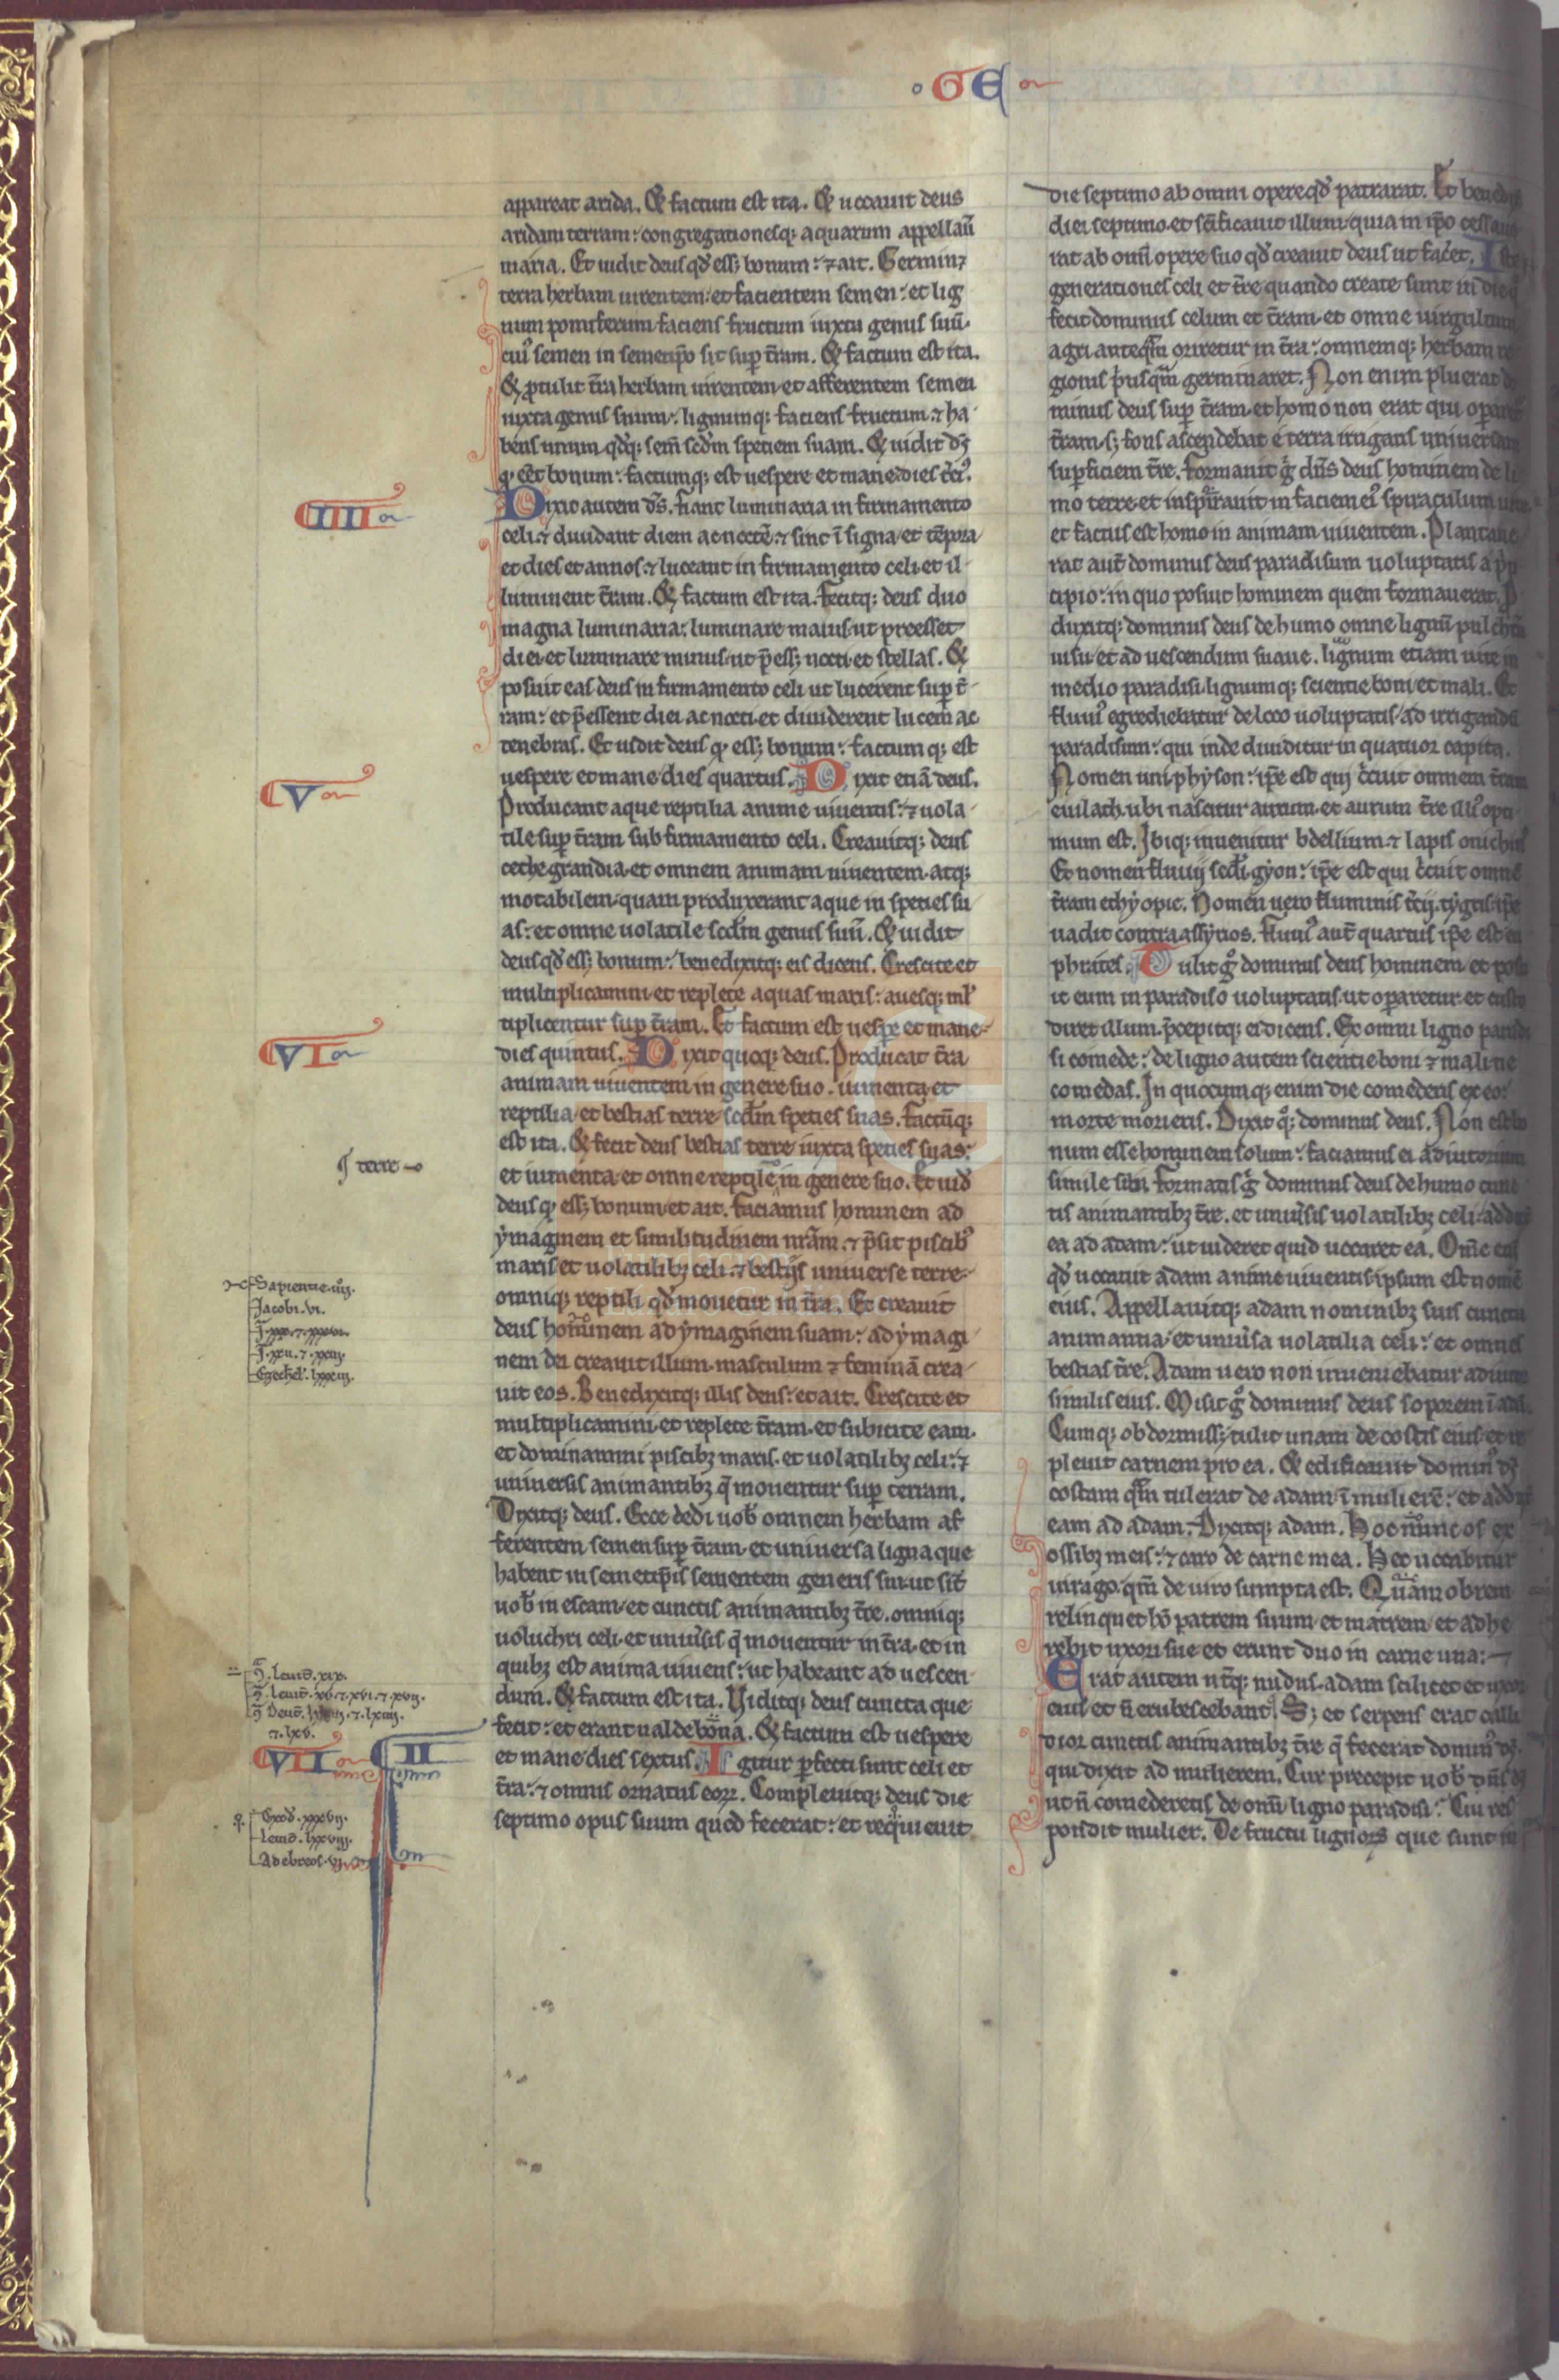 GE
appareat arida. Et factum est ita. Et uocauit deus
aridam terram: congregationesq; aquarum appellaū
maria. Et uidit deus qđ ess; bonum: ⁊ ait. Germin⁊
terra herbam uirentem: et facientem semen: et lig
num pomiferum faciens fructum iuxta genus suū.
cui᷒ semen in semetip̄o sit sup̄ t̄ram. Et factum est ita.
Et ꝓtulit t̄ra herbam uirentem et afferentem semen
iuxta genus suum: lignumq; faciens fructum ⁊ ha
bens unum qđq; sem̄ scđm speciem suam. Et uidit dꝫ
ꝙ eēt bonum: factumq; est uespere et mane dies t̄ci᷒.
IIII
Dixit autem d̄s. Fiant luminaria in firmamento
celi ⁊ diuidant diem ac noctē ⁊ sint ī signa et tēpora
et dies et annos ⁊ luceant in firmamento celi et il
luminent t̄ram. Et factum est ita. Fecitq; deus duo
magna luminaria: luminare maius ut preesset
diei et luminare minus ut p̄ess; nocti et stellas. Et
posuit eas deus in firmamento celi ut lucerent sup̄ t̄
ram: et p̄essent diei ac nocti et diuiderent lucem ac
tenebras. Et uidit deus ꝙ ess; bonum: factum q; est
V
uespere et mane dies quartus. Dixit etiā deus.
Producant aque reptilia anime uiuentis: ⁊ uola
tile sup̄ t̄ram sub firmamento celi. Creauitq; deus
cethe grandia et omnem animam uiuentem atq;
motabilem quam produxerant aque in species su
as: et omne uolatile scđm genus suū. Et uidit
deus qđ ess; bonum: benedixitq; eis dicens. Crescite et
multiplicamini et replete aquas maris: auesq; ml᷒
tiplicentur sup̄ t̄ram. Et factum est uesp̄e et mane
VI
dies quintus. Dixit quoq; deus. Producat t̄ra
animam uiuentem in genere suo. iumenta et
reptilia et bestias terre scđm species suas. Factūq;
¶ terre
est ita. Et fecit deus bestias terre iuxta species suas:
et iumenta et omne reptile in genere suo. Et uiđ
deus ꝙ ess; bonum et ait. Faciamus hominem ad
ymaginem et similitudinem nrām. ⁊ p̄sit piscib᷒
maris et uolatilibꝫ celi ⁊ bestijs uniuerse terre
Sapientie.
Jacobi. vi.
omniq; reptili qđ mouetur in t̄ra. Et creauit
deus hominem ad ymaginem suam: ad ymagi
nem dei creauit illum. masculum ⁊ feminā crea
uit eos. Benedixitq; illis deus: et ait. Crescite et
multiplicamini et replete t̄ram et subicite eam
et dominamini piscibꝫ maris. et uolatilibꝫ celi: ⁊
uniuersis animantibꝫ q̄ mouentur sup̄ terram.
Dixitq; deus. Ecce dedi uob̄ omnem herbam af
ferentem semen sup̄ t̄ram et uniuersa ligna que
habent in semetip̄is sementem generis sui ut sīt
uob̄ in escam et cunctis animantibꝫ t̄re. omniq;
uolucri celi et uniu᷒sis q̄ mouentur in t̄ra et in
quibꝫ est anima uiuens: ut habeant ad uescen
dum. Et factum est ita. Viditq; deus cuncta que
fecit: et erant ualde bona. Et factum est uespere
VII II
et mane dies sextus. Igitur p̄fecti sunt celi et
t̄ra: ⁊ omnis ornatus eoꝝ. Compleuitq; deus die
septimo opus suum quod fecerat: et requieuit
die septimo ab omni opere qđ patrarat. Et bened
diei septimo et sc̄ificauit illum: quia in ip̄o cessaue
rat ab omni opere suo qđ creauit deus ut fac̄et. Iste
generationes celi et t̄re quando create sunt in die q
fecit dominus celum et t̄ram et omne uirgultum
agri anteq̄m oriretur in t̄ra: omnemq; herbam re
gionis p᷒usq̄m germinaret. Non enim pluerat do
minus deus sup̄ t̄ram et homo non erat qui opar
t̄ram s; fons ascendebat e terra irrigans uniuersam
sup̄ficiem t̄re. Formauit ḡ dn̄s deus hominem de li
mo terre et inspirauit in faciem ei᷒ spiraculum uite
et factus est homo in animam uiuentem. Plantaue
rat aut̄ dominus deus paradisum uoluptatis a p᷒n
cipio: in quo posuit hominem quem formauerat. P
duxitq; dominus deus de humo omne lignū pulchrū
uisu et ad uescendum suaue. lignum etiam uite in
medio paradisi lignumq; scientie boni et mali. Et
fluui᷒ egrediebatur de loco uoluptatis ad irrigandū
paradisum: qui inde diuiditur in quatuor capita.
Nomen uni physon: ip̄e est qui c̄cuit omnem t̄ram
euilach. ubi nascitur aurum. et aurum t̄re illi᷒ opti
mum est. Ibiq; inuenitur bdellium ⁊ lapis onichin᷒
Et nomen fluuij scđi gyon: ip̄e est qui c̄cuit omnē
t̄ram ethyopie. Nomen uero fluminis t̄cij. tygris. ip̄e
uadit contra assyrios. Fluui᷒ aut̄ quartus ip̄e est eu
phrates. Tulit ḡ dominus deus hominem et posu
it eum in paradiso uoluptatis ut operaretur et custo
diret illum. p̄cepitq; ei dicens. Ex omni ligno paradi
si comede: de ligno autem scientie boni ⁊ mali ne
comedas. In quocumq; enim die comederis ex eo:
morte morieris. Dixit q; dominus deus. Non est bo
num esse hominem solum: faciamus ei adiutorium
simile sibi. Formatis ḡ dominus deus de humo cunc
tis animantibꝫ t̄re. et uniu᷒sis uolatilibꝫ celi. addux
ea ad adam: ut uideret quid uocaret ea. Om̄e eni
qđ uocauit adam anime uiuentis ipsum est nomē
eius. Appellauitq; adam nominibꝫ suis cuncta
animantia et uniu᷒sa uolatilia celi: et omnes
bestias t̄re. Adam uero non inueniebatur adiutor
similis eius. Misit ḡ dominus deus soporem ī adā.
Cumq; obdormiss; tulit unam de costis eius et re
pleuit carnem pro ea. Et edificauit domin᷒ dꝫ
costam q̄m tulerat de adam ī mulierē: et addux
eam ad adam. Dixitq; adam. Hoc nunc os ex
ossibꝫ meis: ⁊ caro de carne mea. Hec uocabitur
uirago. qm̄ de uiro sumpta est. Quam obrem
relinquet hō patrem suum et matrem et adhe
rebit uxori sue et erunt duo in carne una:
Erat autem ut̄q; nudus. adam scilicet et uxor
eius et n̄ erubescebant. S; et serpens erat calli
dior cunctis animantibꝫ t̄re q̄ fecerat domin᷒ dꝫ.
qui dixit ad mulierem. Cur precepit uob̄ dn̄s dꝫ
ut n̄ comederetis de omī ligno paradisi: Cui res
pondit mulier. De fructu lignoꝝ que sunt in